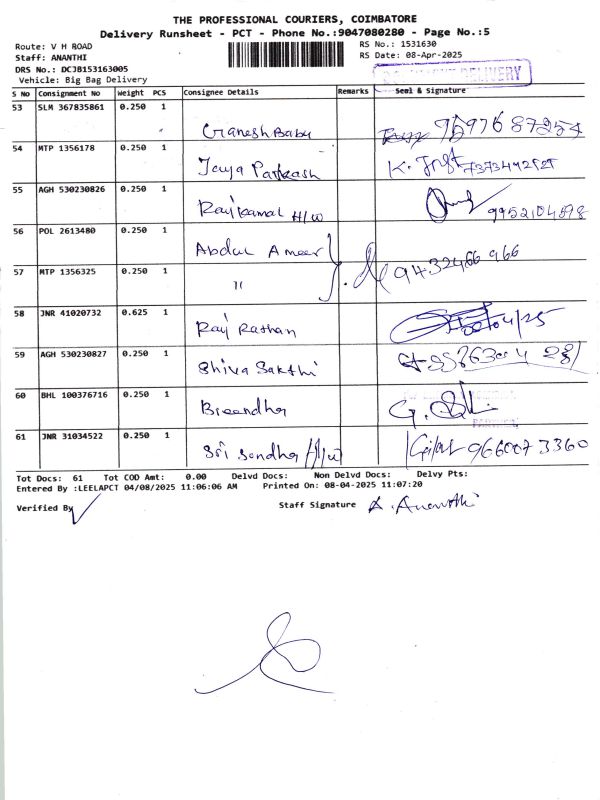 THE PROFESSIONAL COURIERS, COIMBATORE
Delivery Runsheet - PCT - Phone No.:9047080280 - Page No.:5
Route: V H ROAD
Staff: ANANTHI
DRS No.: DCJB153163005
Vehicle: Big Bag Delivery
RS No.: 1531630
RS Date: 08-Apr-2025
DELIVERY
S No Consignment No Weight PCS Consignee Details Remarks Seal & Signature
53 SLM 367835861 0.250 1 Ganesh Babu 7597687254
54 MTP 1356178 0.250 1 Jeya Parkash K.
55 AGH 530230826 0.250 1 Raj kamal H/W 9952104898
56 POL 2613480 0.250 1 Abdul Ameer
57 MTP 1356325 0.250 1 " 9432466966
58 JNR 41020732 0.625 1 Raj Rathan 04/25
59 AGH 530230827 0.250 1 Shiva Sakthi
60 BHL 100376716 0.250 1 Breendha G.
61 JNR 31034522 0.250 1 Sri Sendha H/W 9660073360
Tot Docs: 61 Tot COD Amt: 0.00 Delvd Docs: Non Delvd Docs: Delvy Pts:
Entered By :LEELAPCT 04/08/2025 11:06:06 AM Printed On: 08-04-2025 11:07:20
Verified By
Staff Signature A. Ananthi